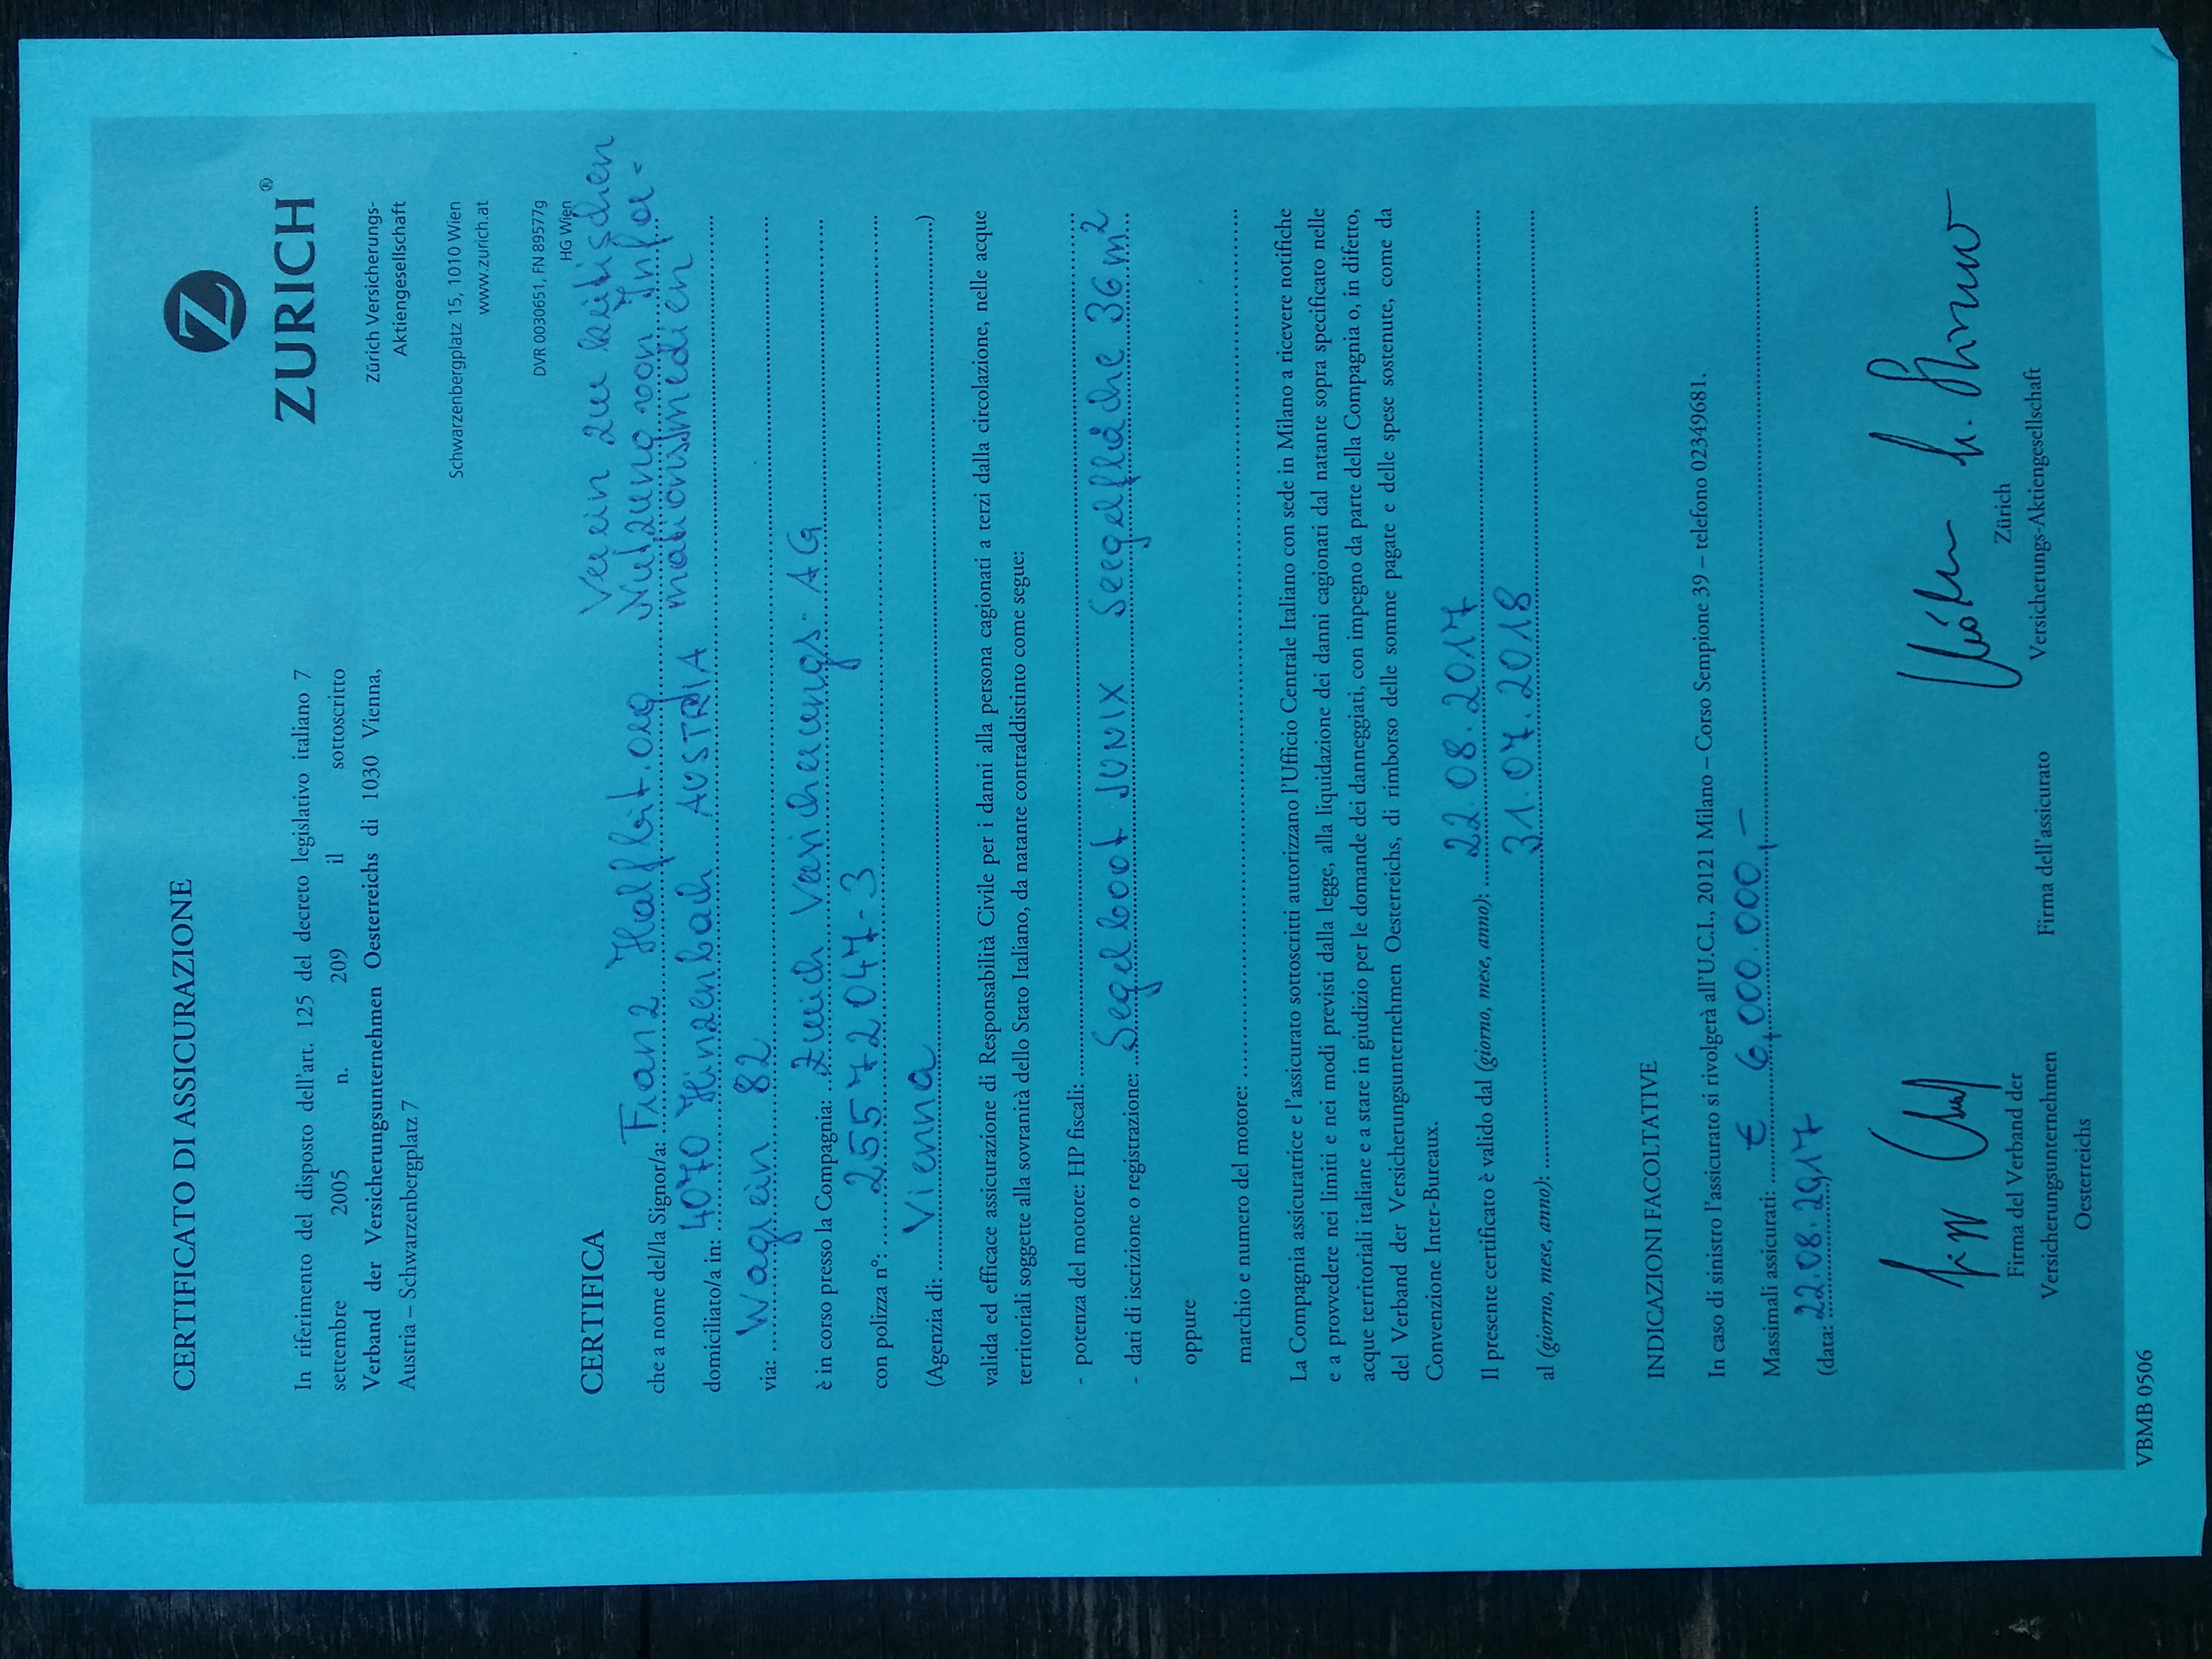 CERTIFICATO DI ASSICURAZIONE
ZURICH®
In riferimento del disposto dell'art. 125 del decreto legislativo italiano 7
settembre 2005 n. 209 il sottoscritto
Verband der Versicherungsunternehmen Oesterreichs di 1030 Vienna,
Austria – Schwarzenbergplatz 7
Zürich Versicherungs-
Aktiengesellschaft
Schwarzenbergplatz 15, 1010 Wien
www.zurich.at
DVR 0030651, FN 89577g
HG Wien
CERTIFICA
Verein zur kritischen
Nutzung von Infor-
mationsmedien
che a nome del/la Signor/a: Franz Halfbit.org
domiciliato/a in: 4070 Hinzenbach AUSTRIA
via: Wagrein 82
è in corso presso la Compagnia: Zurich Versicherungs-AG
con polizza n°: 25572047-3
(Agenzia di: Vienna)
valida ed efficace assicurazione di Responsabilità Civile per i danni alla persona cagionati a terzi dalla circolazione, nelle acque
territoriali soggette alla sovranità dello Stato Italiano, da natante contraddistinto come segue:
- potenza del motore: HP fiscali:
- dati di iscrizione o registrazione: Segelboot JUNIX Seegelfläche 36 m²
oppure
marchio e numero del motore:
La Compagnia assicuratrice e l'assicurato sottoscritti autorizzano l'Ufficio Centrale Italiano con sede in Milano a ricevere notifiche
e a provvedere nei limiti e nei modi previsti dalla legge, alla liquidazione dei danni cagionati dal natante sopra specificato nelle
acque territoriali italiane e a stare in giudizio per le domande dei danneggiati, con impegno da parte della Compagnia o, in difetto,
del Verband der Versicherungsunternehmen Oesterreichs, di rimborso delle somme pagate e delle spese sostenute, come da
Convenzione Inter-Bureaux.
Il presente certificato è valido dal (giorno, mese, anno): 22.08.2017
al (giorno, mese, anno): 31.07.2018
INDICAZIONI FACOLTATIVE
In caso di sinistro l'assicurato si rivolgerà all'U.C.I., 20121 Milano – Corso Sempione 39 – telefono 02349681.
Massimali assicurati: € 6,000.000,–
(data: 22.08.2917
Firma del Verband der
Versicherungsunternehmen
Oesterreichs
Firma dell'assicurato
Zürich
Versicherungs-Aktiengesellschaft
VBMB 0506